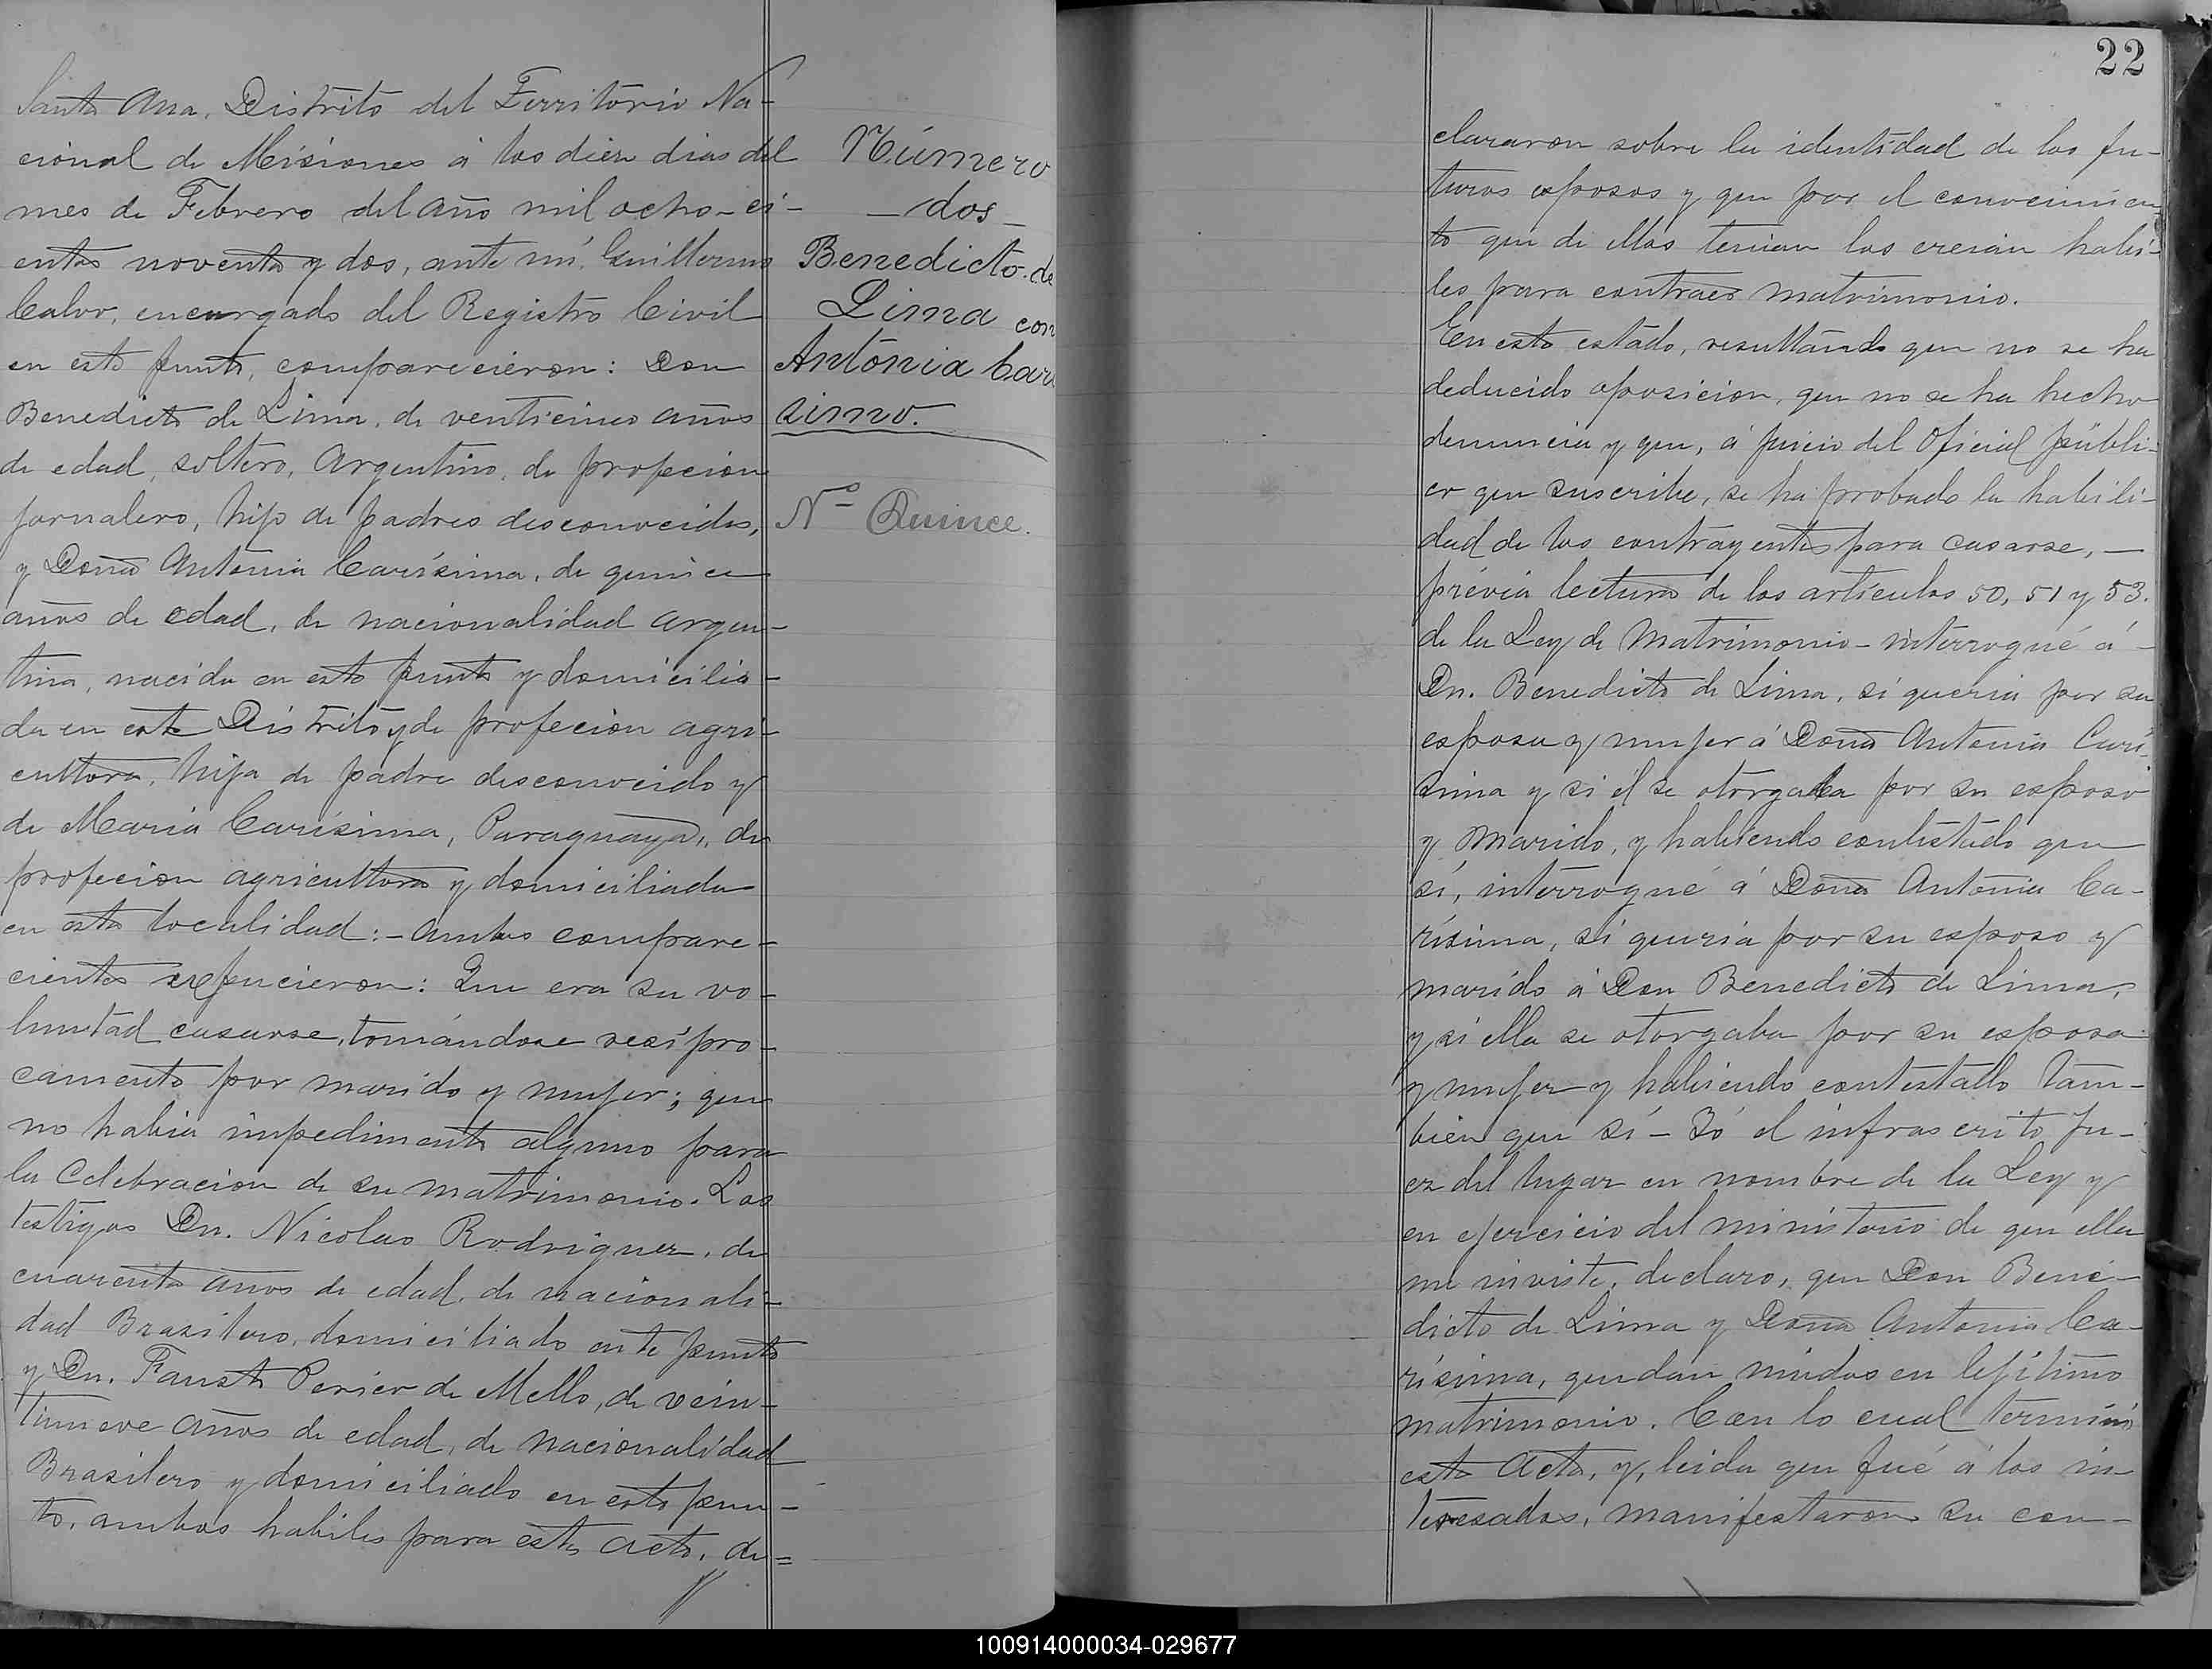 Santa Ana, Distrito del Territorio Na-
cional de Misiones á los diez dias del
mes de Febrero del año mil ocho-ci-
entos noventa y dos, ante mí, Guillermo
Calor, encargado del Registro Civil
en este punto, comparecieron: Don
Benedicto de Lima, de venticinco años
de edad, soltero, Argentino, de profecion
jornalero, hijo de padres desconocidos,
y Doña Antonia Carísima, de quince
años de edad, de nacionalidad argen-
tina, nacida en este punto y domicilia-
da en este Distrito y de profecion agri-
cultora, hija de padre desconocido y
de Maria Carísima, Paraguaya, de
profecion agricultora y domiciliada
en esta localidad:- Ambos compare-
cientes espucieron: Que era su vo-
luntad casarse, tomándose resípro-
camente por marido y mujer; que
no habia impedimento alguno para
la Celebracion de su matrimonio. Los
testigos Dn. Nicolas Rodriguez, de
cuarenta años de edad, de nacionali-
dad Brasilero, domiciliado en te punto
y Dn. Fausto Perier de Mello, de vein-
tinueve años de edad, de nacionalidad
Brasilero y domiciliado en este pun-
to, ambos habiles para este acto, de=
Número
- dos -
Benedicto de
Lima con
Antónia Cari
simo.
Nº Quince.
22
clararon sobre la identidad de los fu-
turos esposos y que por el conocimien
to que de ellos tenian los creian habi-
les para contraer matrimonio.
En este estado, resultando que no se ha
deducido oposicion, que no se ha hecho
denuncia y que, á juicio del Oficial públi-
co que suscribe, se ha probado la habili-
dad de los contrayentes para casarse, -
prévia lectura de los artículos 50, 51 y 53.
de la Ley de Matrimonio - interrogué á -
Dn. Benedicto de Lima, si queria por su
esposa y mujer á Doña Antonia Carí-
sima y si él se otorgaba por su esposo
y Marido, y habiendo contestado que
sí, interrogué á Doña Antonia Ca-
rísima, si queria por su esposo y
marido á Don Benedicto de Lima,
y si ella se otorgaba por su esposa
y mujer y habiendo contestado tam-
bien que sí - Yó el infrascrito Ju-
ez del lugar en nombre de la Ley y
en ejercicio del ministerio de que ella
me inviste, declaro, que Don Bene-
dicto de Lima y Doña Antonia Ca-
rísima, quedan unidos en lejítimo
matrimonio. Con lo cual terminó
esta Acta, y, leida que fué á los in-
teresados, manifestaron su con-
100914000034-029677